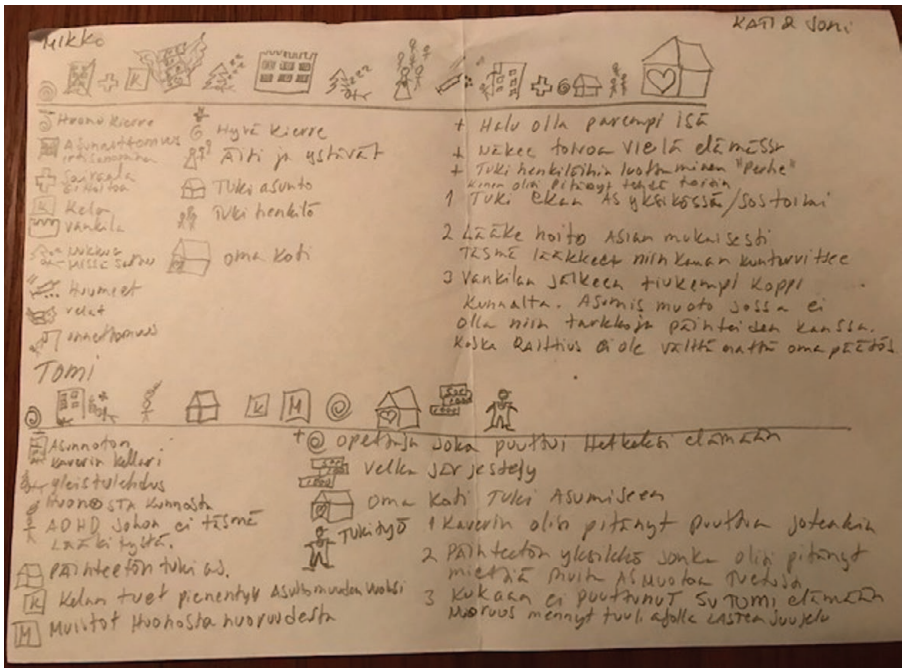 Mikko
KATI & Joni
Huono kierre
Asunnottomuus
irtisanominen
Sairaala
ei hoitoa
Kelan
vankila
missä sattuu
Huumeet
velat
onnettomuus
Hyvä kierre
Äiti ja ystävät
Tuki asunto
Tuki henkilö
oma koti
+ Halu olla parempi isä
+ Näkee toivoa vielä elämässä
+ Tuki henkilöihin luottaminen "Perhe"
Kuinka olisi pitänyt tehdä toisin
1 Tuki ekan AS yksikössä/sostoimi
2 Lääke hoito Asian mukaisesti
Täsmä lääkkeet niin kauan kun tarvitsee
3 Vankilan jälkeen tiukempi koppi
kunnalta. Asumis muoto jossa ei
olla niin tarkkoja päihteiden kanssa.
Koska Raittius ei ole välttämättä oma päätös
Tomi
K
M
Asunnoton
kaverin kellari
yleistulehdus
Huonosta kunnosta
ADHD johon ei täsmä
Lääkitystä.
Päihteetön tuki as.
K Kelan tuet pienentyy Asuttomuuden vuoksi
M Muistot Huonosta nuoruudesta
+ @ opettaja joka puuttui Hetkeksi elämään
velka järjestely
oma koti Tuki Asumiseen
Tukityö
1 Kaverin olisi pitänyt puuttua jotenkin
2 Päihteetön yksikkö jonka olisi pitänyt
miettiä muita AS muotoa
3 Kukaan ei puuttunut Tomi elämään
Nuoruus mennyt tuuli ajolla Lasten suojelu